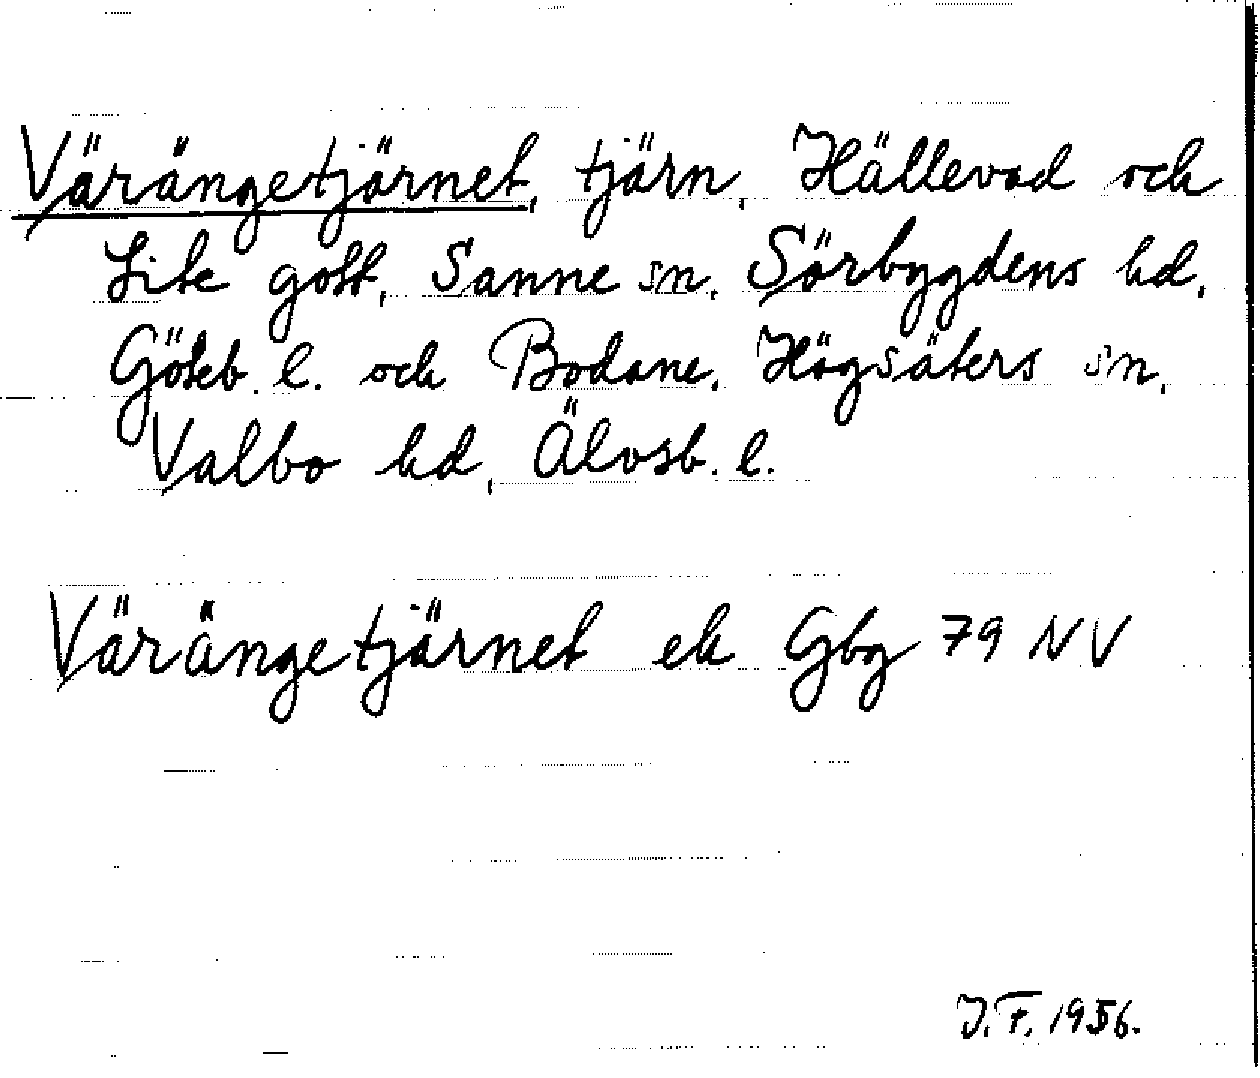 Värängetjärnet, tjärn, Hällevad och
Lite gott, Sanne sn, Sörbygdens hd,
Göteb. l. och Bodane, Högsäters sn,
Valbo hd, Älvsb. l.
Värängetjärnet ek Gbg 79 NV
J.F. 1956.